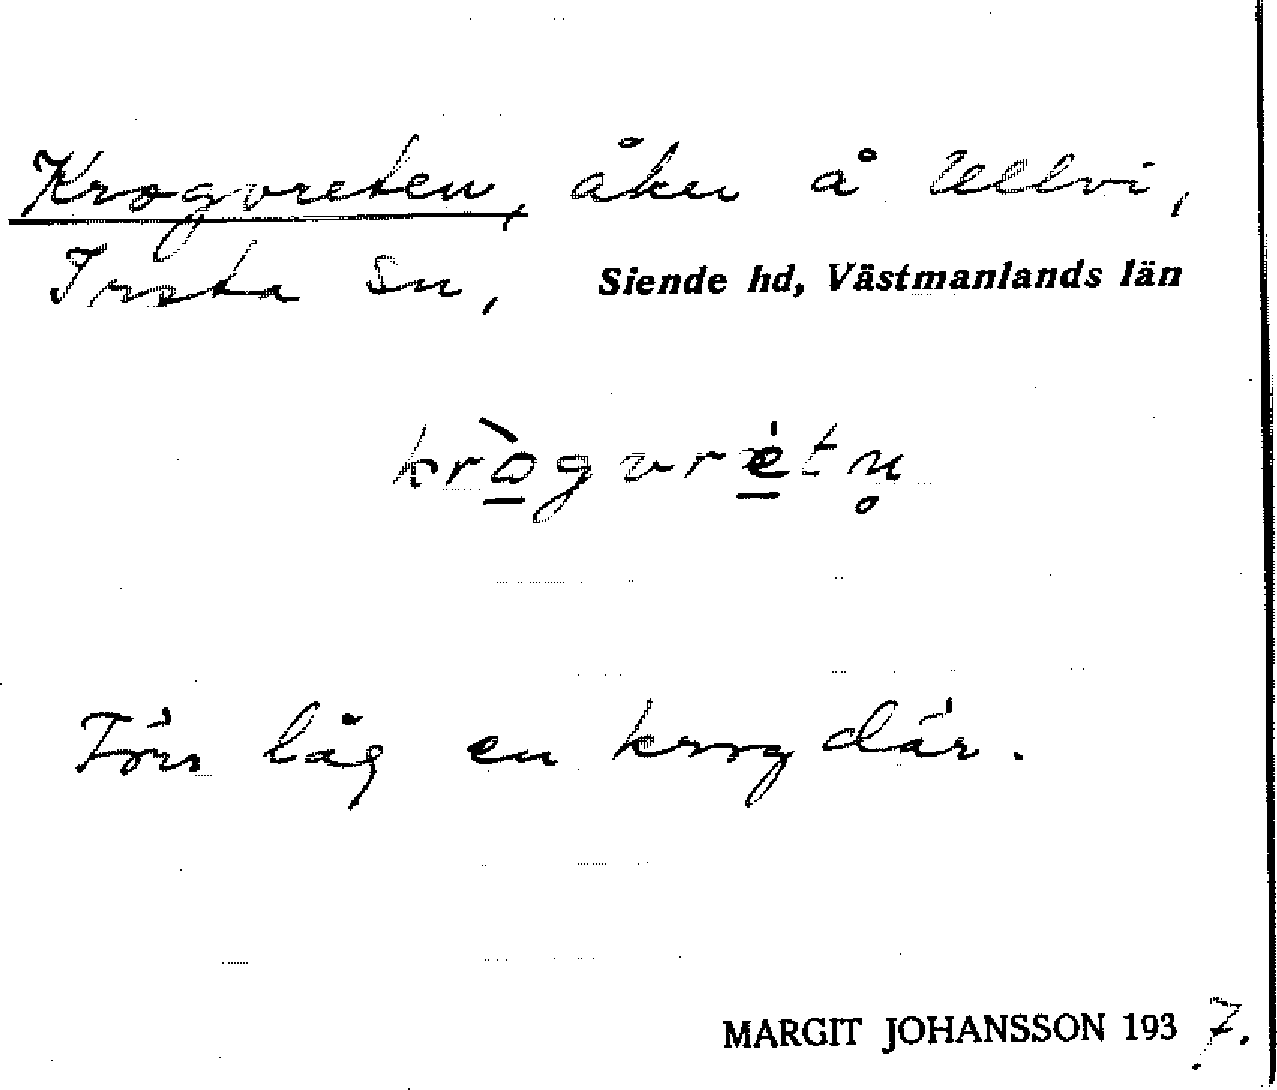 Krogvreten, åker å Ullvi,
Irsta sn, Siende hd, Västmanlands län
krò̱gvrė̱tn̥
Förr låg en krog där.
MARGIT JOHANSSON 1937.